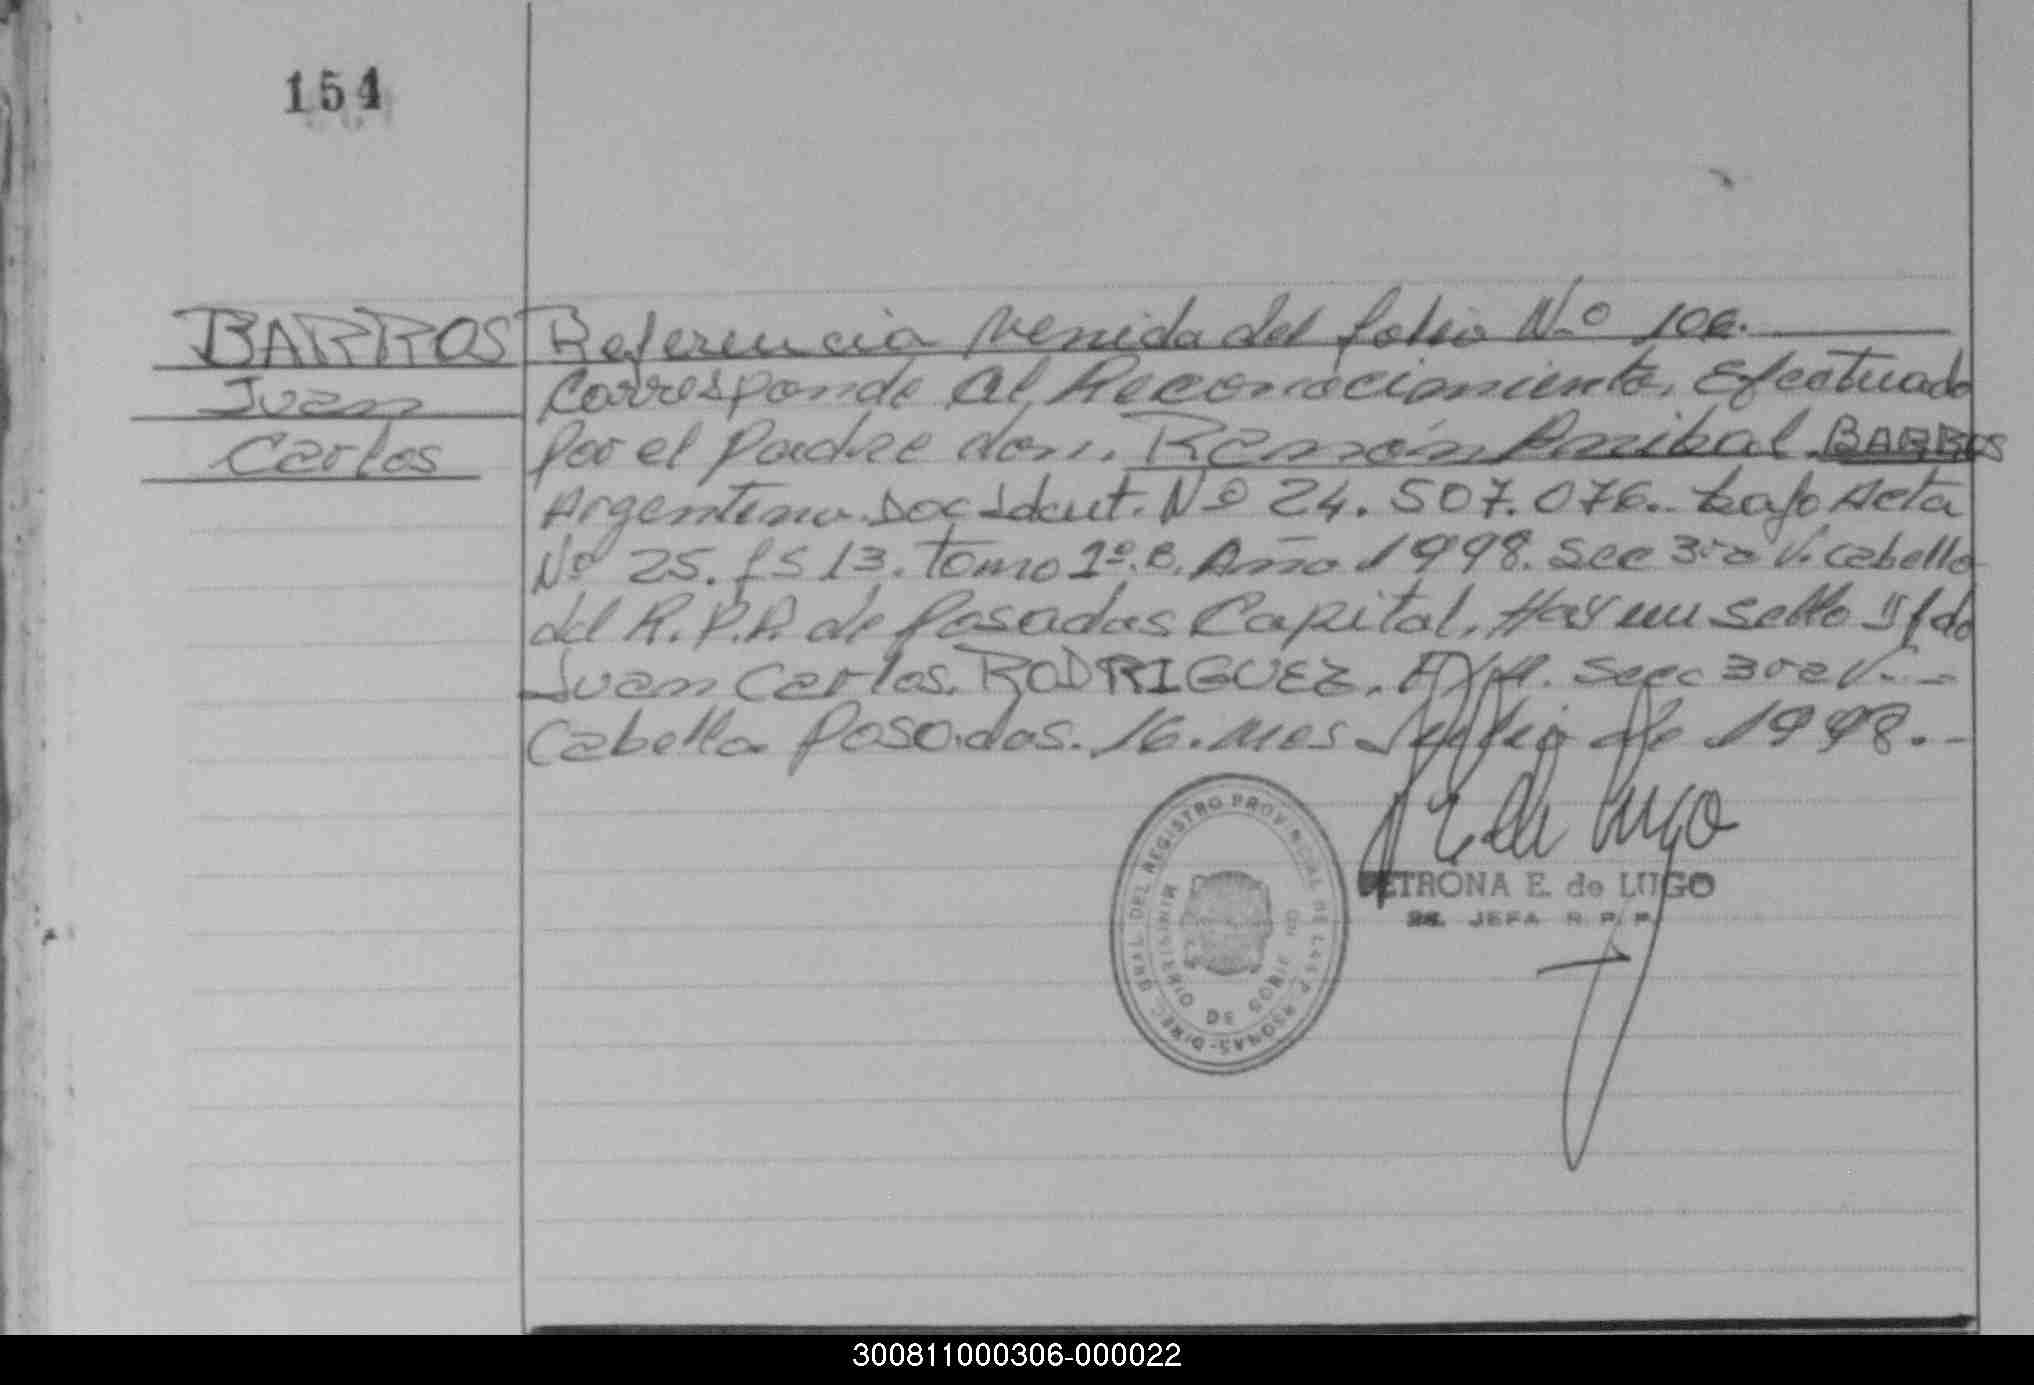 154
BARROS
Juan
Carlos
Referencia Venida del folio No 106.
Corresponde al Reconocimiento, Efectuado
por el padre don. Ramón Anibal BARROS
Argentino. Doc Ident. No 24.507.076.. bajo Acta
No 25. fs 13. Tomo 1º.B. Año 1998. Sec 3ra V. Cabello
del R.P.P. de Posadas Capital, Hay un sello y fdo
Juan Carlos. RODRIGUEZ. Secc 3ra V..-
Cabello Posadas. 16. mes Julio de 1998.-
PETRONA E. de LUGO
JEFA R. P. P.
DIREC. GRAL DEL REGISTRO PROVINCIAL DE LAS PERSONAS-
MINISTERIO DE GOBIERNO
300811000306-000022